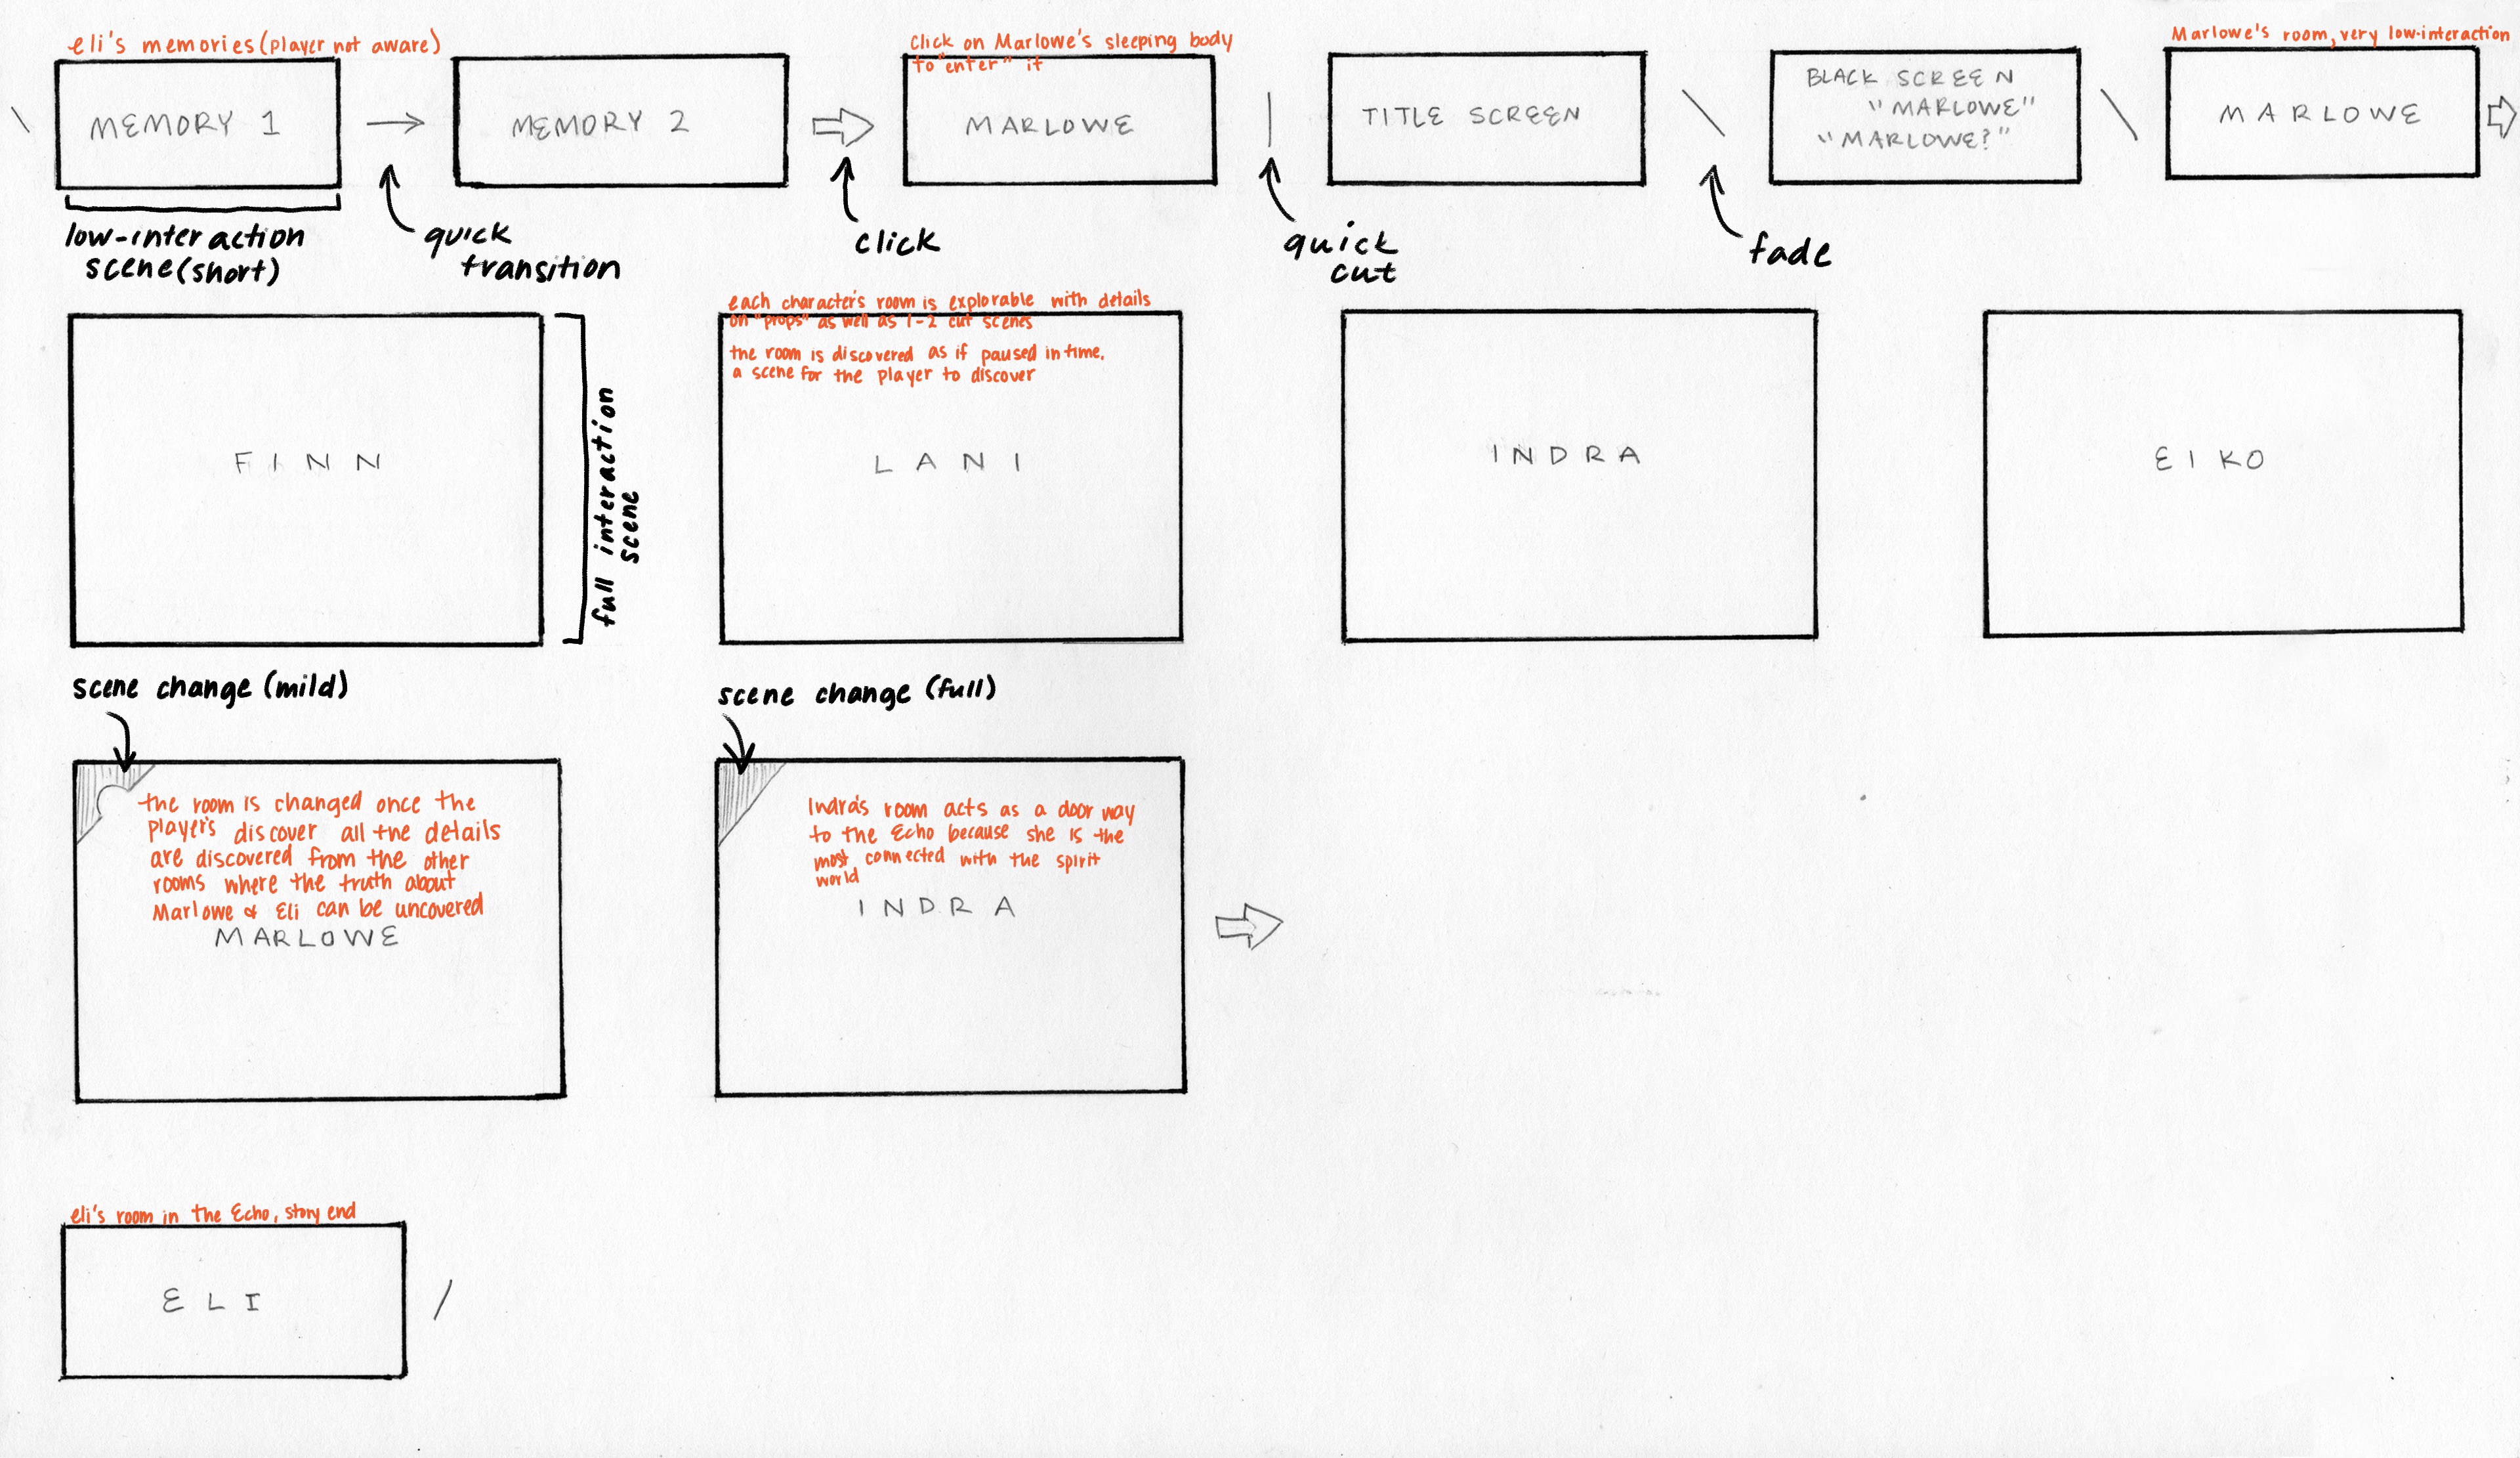 eli's memories (player not aware)
MEMORY 1
low-interaction
scene (short)
quick
transition
MEMORY 2
click
Click on Marlowe's sleeping body
to "enter" it
MARLOWE
quick
cut
TITLE SCREEN
fade
BLACK SCREEN
"MARLOWE"
"MARLOWE?"
Marlowe's room, very low-interaction
MARLOWE
FINN
full interaction
scene
each character's room is explorable with details
on "props" as well as 1-2 cut scenes
the room is discovered as if paused in time,
a scene for the player to discover
LANI
INDRA
EIKO
scene change (mild)
the room is changed once the
player's discover all the details
are discovered from the other
rooms where the truth about
Marlowe & Eli can be uncovered
MARLOWE
scene change (full)
Indra's room acts as a door way
to the Echo because she is the
most connected with the spirit
world
INDRA
eli's room in the Echo, story end
ELI